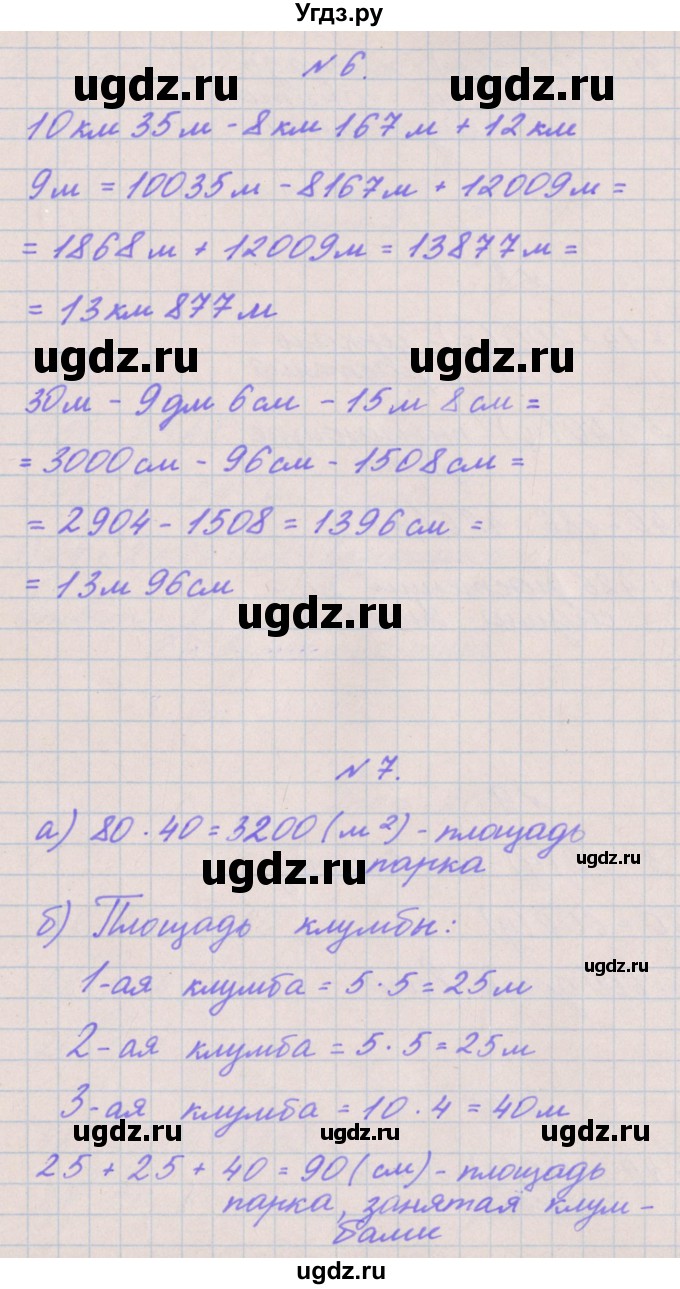 Угдз.ру
ugdz.ru ugdz.ru
№ 6.
10 км 35 м - 8 км 167 м + 12 км
9 м = 10035 м - 8167 м + 12009 м =
= 1868 м + 12009 м = 13877 м =
= 13 км 877 м
ugdz.ru ugdz.ru
30 м - 9 дм 6 см - 15 м 8 см =
= 3000 см - 96 см - 1508 см =
= 2904 - 1508 = 1396 см =
= 13 м 96 см
ugdz.ru
№ 7.
а) 80 · 40 = 3200 (м²) - площадь
парка
ugdz.ru ugdz.ru
б) Площадь клумбы:
ugdz.ru
1-ая клумба = 5 · 5 = 25 м
2-ая клумба = 5 · 5 = 25 м
3-ая клумба = 10 · 4 = 40 м
ugdz.ru ugdz.ru ugdz.ru
25 + 25 + 40 = 90 (см) - площадь
парка, занятая клум-
бами
ugdz.ru